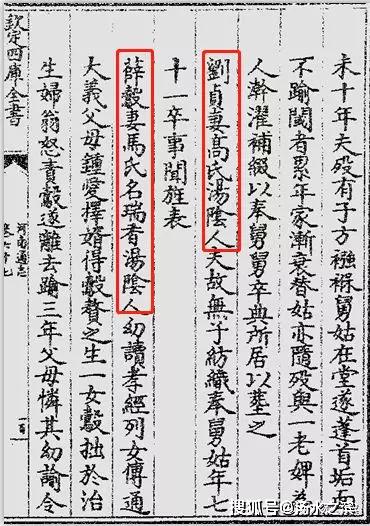 未十年夫殁有子方襁褓舅姑在堂遂蓬首垢面
不踰閾者累年家漸衰替姑亦隨殁與一老婢為
人澣濯補綴以奉舅舅卒典所居以塟之
劉貞妻髙氏湯隂人夫故無子紡織奉舅姑年七
十一卒事聞旌表
薛瑴妻馬氏名端香湯隂人幼讀孝經列女傳通
大義父母鍾愛擇婿得瑴贅之生一女瑴拙於治
生婦翁怒責瑴遂離去踰三年父母憐其幼諭令
欽定四庫全書
河南通志
搜狐号@荡水之滨